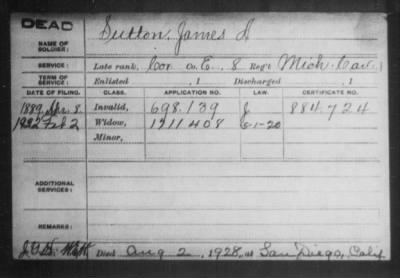 DEAD
NAME OF SOLDIER: Sutton, James I
SERVICE: Late rank, Cor Co. E, 8 Reg't Mich. Cav.
TERM OF SERVICE: Enlisted , 1 Discharged , 1
DATE OF FILING. CLASS. APPLICATION NO. LAW. CERTIFICATE NO.
1889, Apr. 8. Invalid, 698.139 J 884.724
1932 Feb 2 Widow, 1711408 G 1-20
Minor,
ADDITIONAL SERVICES:
REMARKS:
Died Aug 2, 1928, at San Diego, Calif